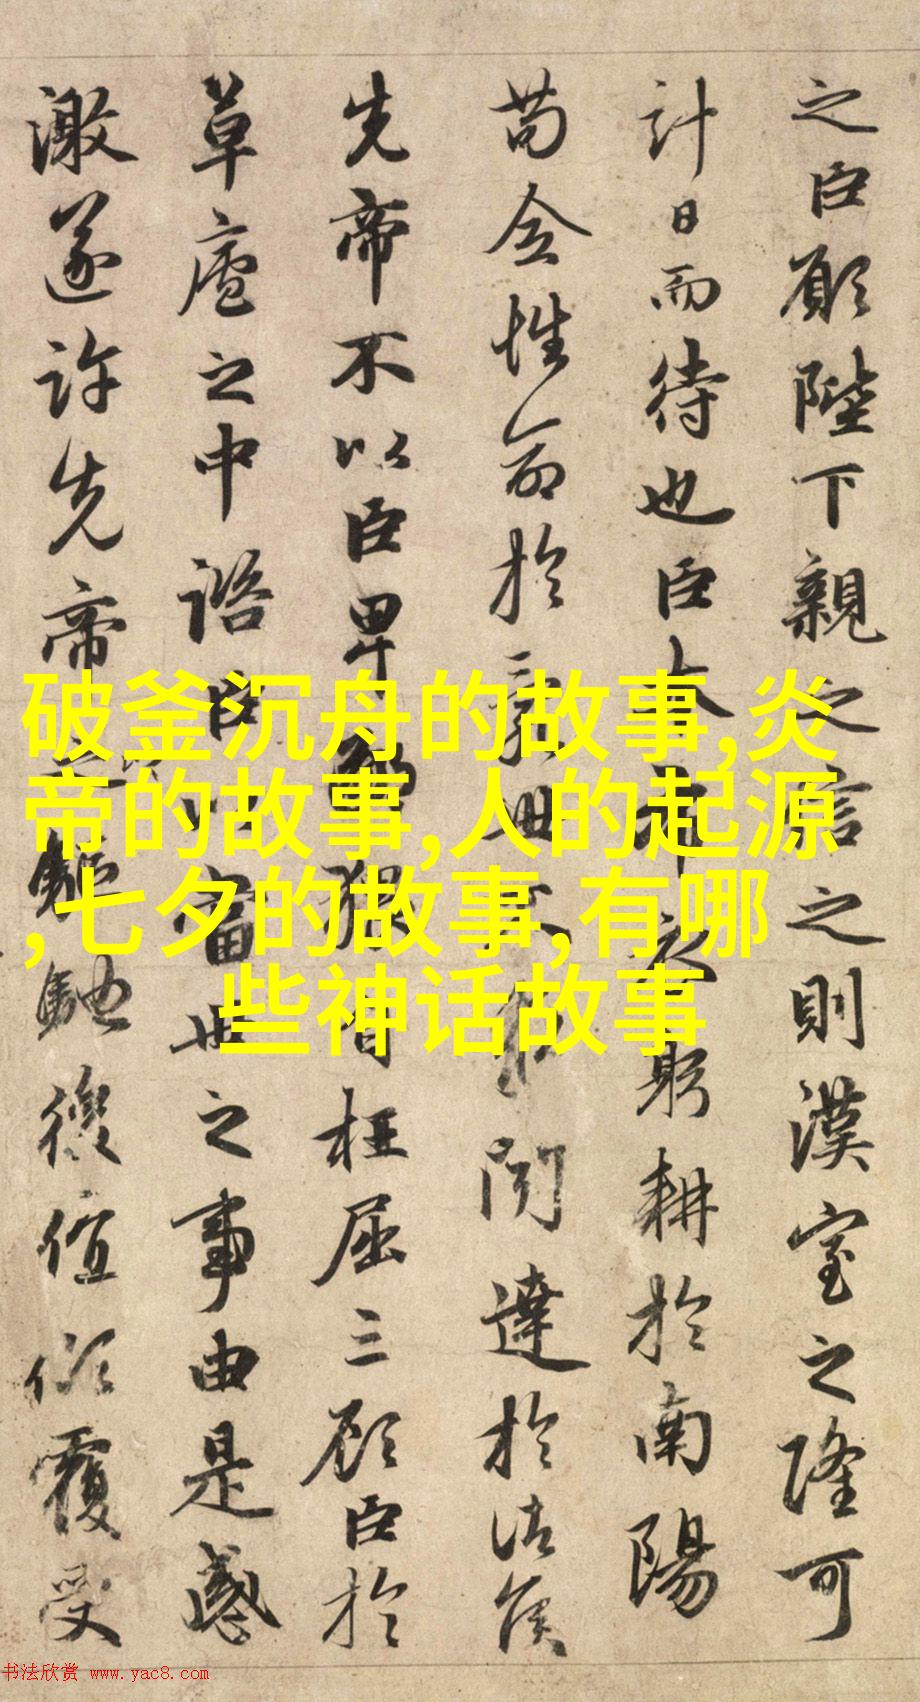 之臣願陛下親之信之則漢室之隆可
計日而待也臣本布衣躬耕於南陽
苟全性命於亂世不求聞達於諸侯
先帝不以臣卑鄙猥自枉屈三顧臣於
草廬之中諮臣以當世之事由是感
激遂許先帝以驅馳後值傾覆受
破釜沉舟的故事,炎
帝的故事,人的起源
,七夕的故事,有哪
些神话故事
书法欣赏 www.yac8.com